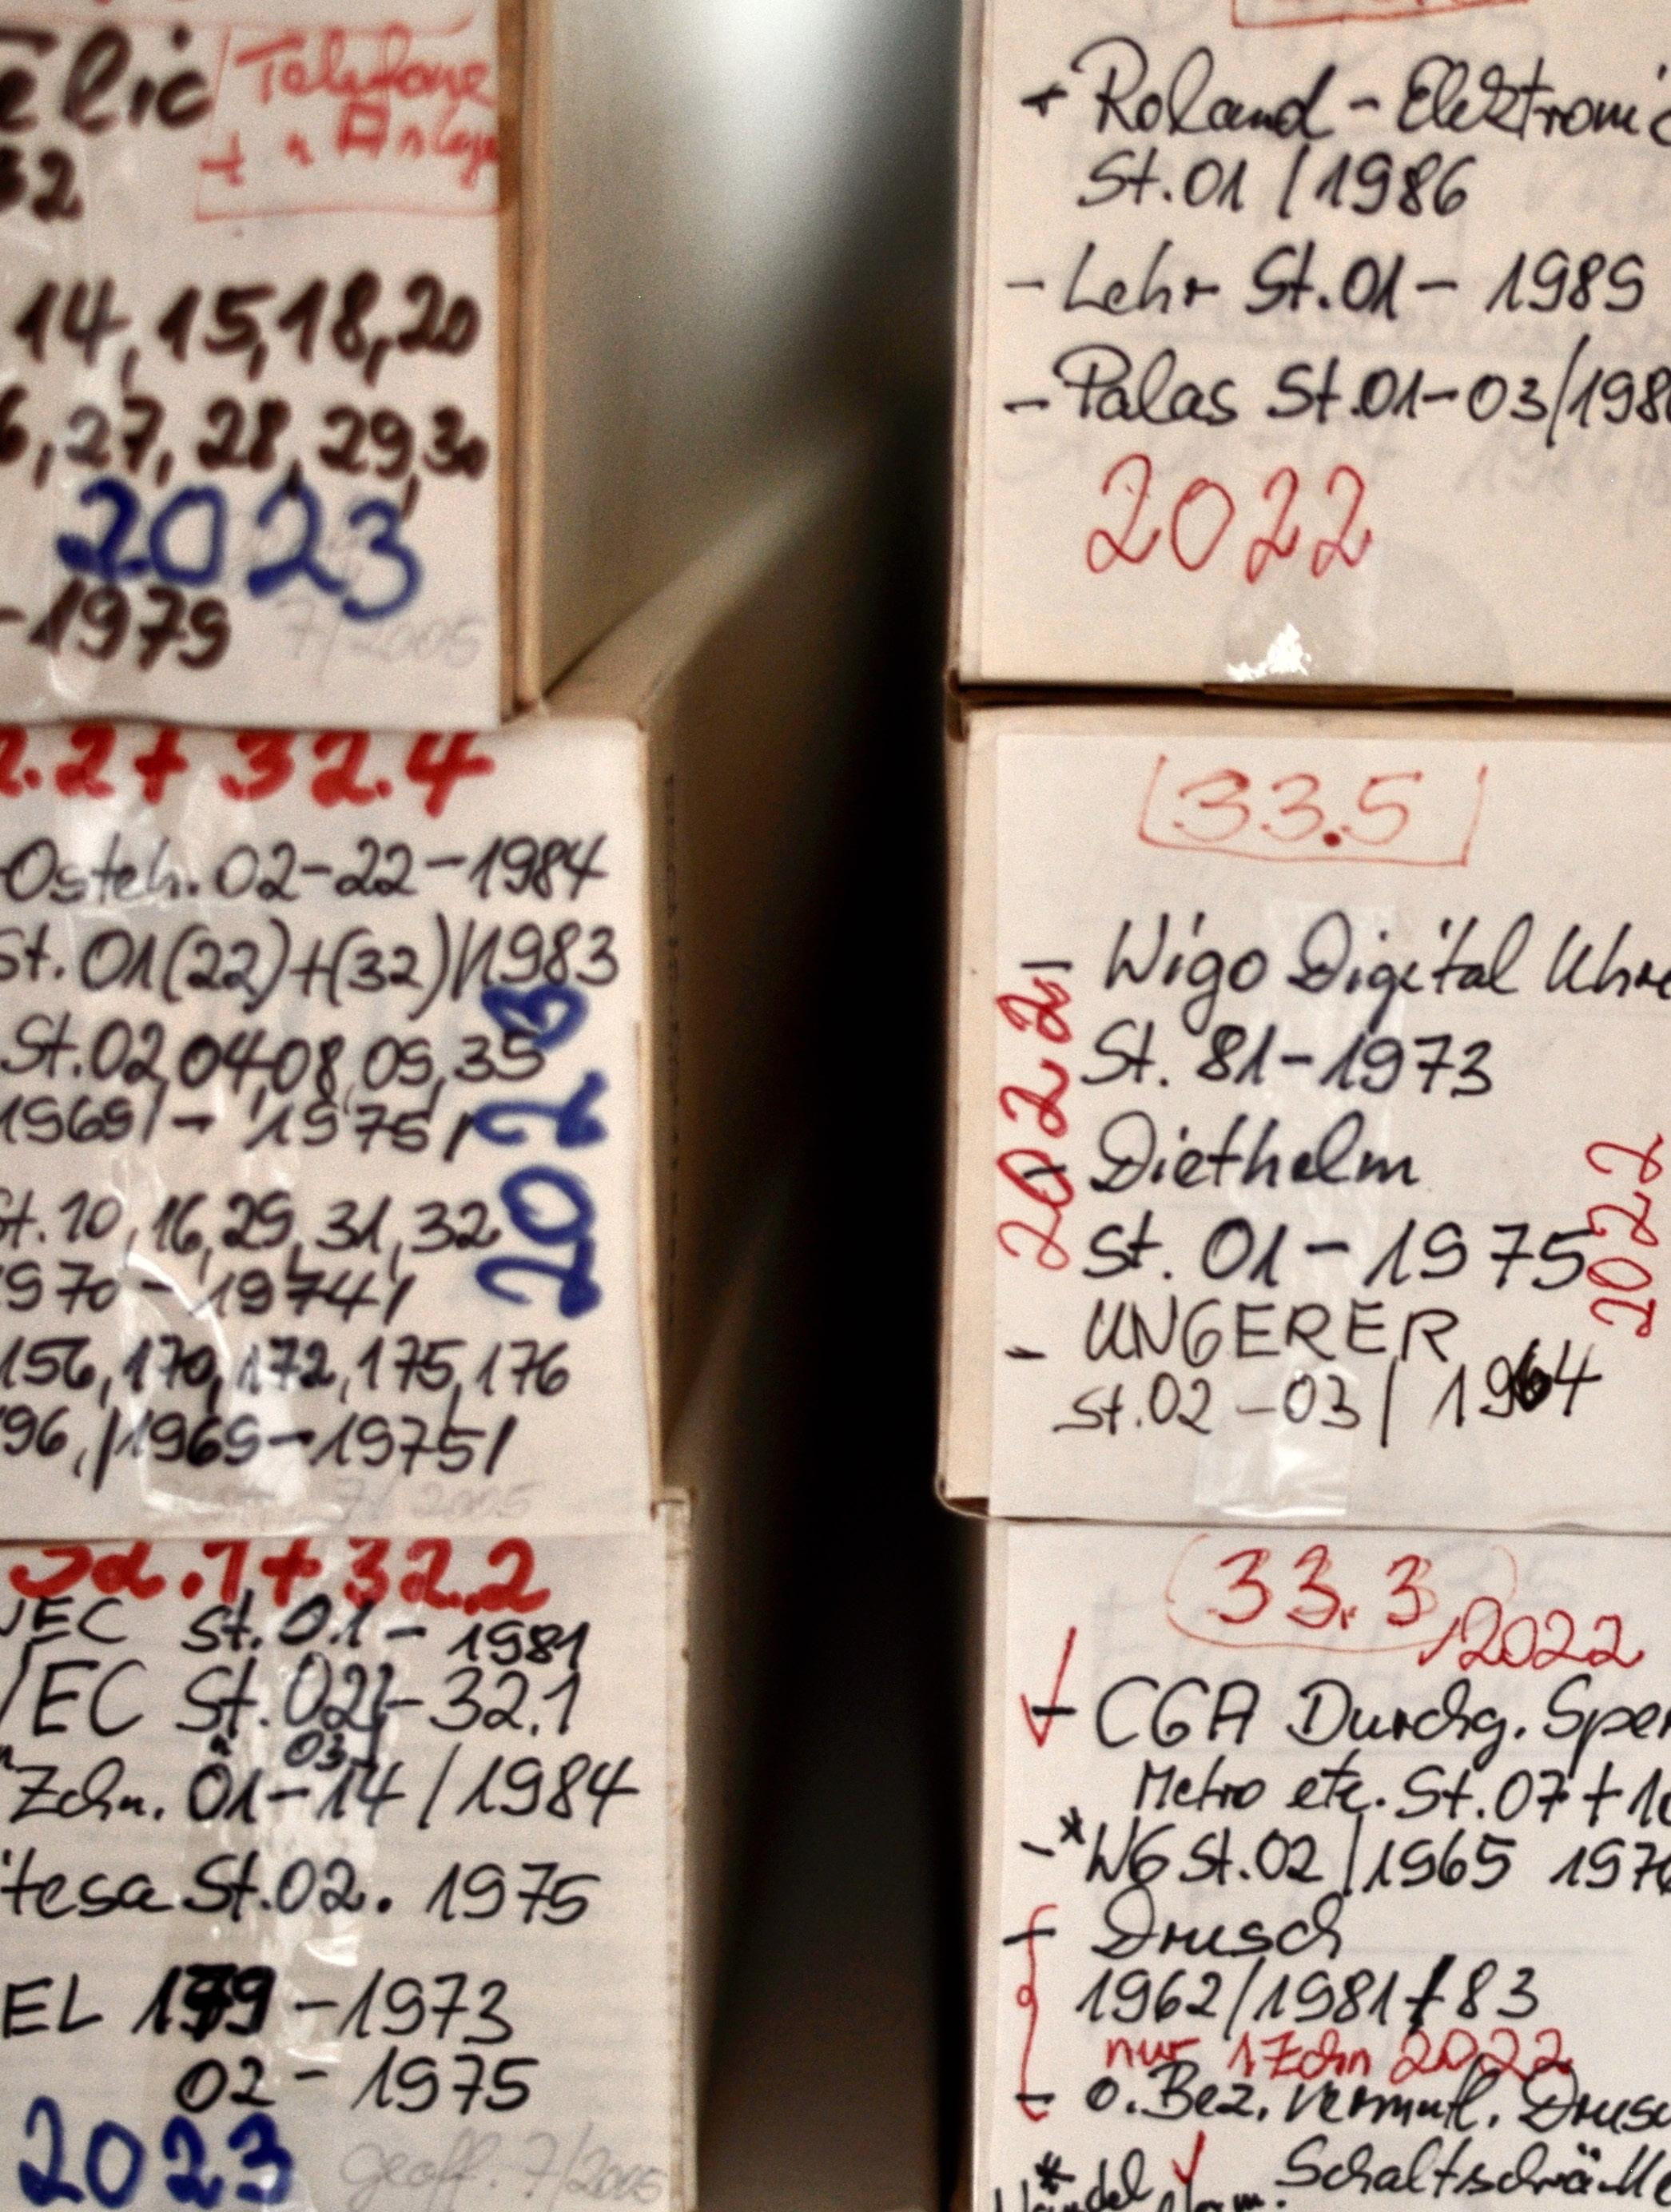 elic
Telefone
+ " Anlage
32
14, 15, 18, 20
6, 27, 28, 29, 30
2023
-1979
7/2005
2.2 + 32.4
Osteh. 02-22-1984
St. 01(22)+(32)/1983
St. 02,04,08,09,35
1969/- 1975/
2023
St. 10, 16, 29, 31, 32
1970 - 1974/
156, 170, 172, 175, 176
96, /1969-1975/
7/2005
.1 + 32.2
EC St. 01 - 1981
EC St. 02 - 32.1
" 03
Zchn. 01-14/1984
tesa St. 02. 1975
EL 179 - 1973
02 - 1975
2023
geoff. 7/2005
+ Roland - Elektronic
St. 01 / 1986
- Lehr St. 01 - 1989
- Palas St. 01-03/198
2022
33.5
- Wigo Digital Uhre
St. 81-1973
2022
- Diethelm
St. 01 - 1975
2022
- UNGERER
St. 02 - 03 / 1964
33.3, 2022
- CGA Durchg. Sper
Metro etc. St. 07 + 10
-* WG St. 02 / 1965 197
- Drusch
1962/1981/83
nur 1 Zchn 2022
- o. Bez. vermutl. Drusc
* Schaltschränke